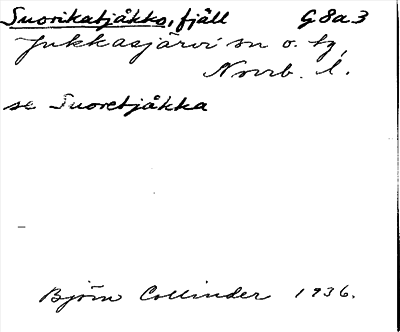 Suorikatjåkko, fjäll G8a3
Jukkasjärvi sn o. tg,
Norrb. l.
se Suoretjåkka
Björn Collinder 1936.